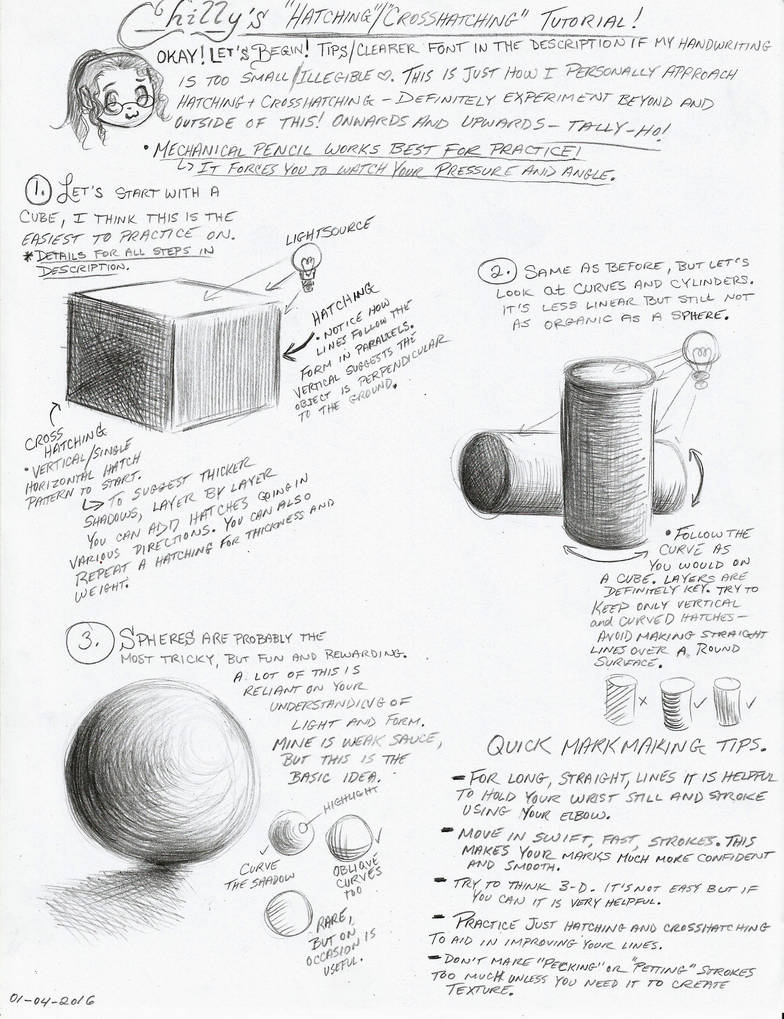 Chilly's "Hatching"/"Crosshatching" Tutorial!
Okay! Let's Begin! Tips/Clearer font in the description if my handwriting
is too small/illegible ♡. This is just how I personally approach
hatching + crosshatching – definitely experiment beyond and
outside of this! Onwards and upwards – Tally-Ho!
• Mechanical pencil works best for practice!
↳ It forces you to watch your pressure and angle.
1. Let's start with a
cube, I think this is the
easiest to practice on.
* Details for all steps in
description.
Lightsource
Hatching
• Notice how
lines follow the
form in parallels.
Vertical suggests the
object is perpendicular
to the ground.
Cross
Hatching
• Vertical/single
horizontal hatch
pattern to start.
↳ To suggest thicker
shadows, layer by layer
you can add hatches going in
various directions. You can also
repeat a hatching for thickness and
weight.
2. Same as before, but let's
look at curves and cylinders.
It's less linear but still not
as organic as a sphere.
• Follow the
curve as
you would on
a cube. Layers are
definitely key. Try to
keep only vertical
and curved hatches –
avoid making straight
lines over a round
surface.
x ✓ ✓
3. Spheres are probably the
most tricky, but fun and rewarding.
A lot of this is
reliant on your
understanding of
light and form.
Mine is weak sauce,
but this is the
basic idea.
Highlight
✓ Curve
the shadow
✓
Oblique
curves
too
Rare,
but on
occasion is
useful.
Quick Markmaking Tips.
– For long, straight, lines it is helpful
to hold your wrist still and stroke
using your elbow.
– Move in swift, fast, strokes. This
makes your marks much more confident
and smooth.
– Try to think 3-D. It's not easy but if
you can it is very helpful.
– Practice just hatching and crosshatching
to aid in improving your lines.
– Don't make "pecking" or "petting" strokes
too much unless you need it to create
texture.
01-04-2016